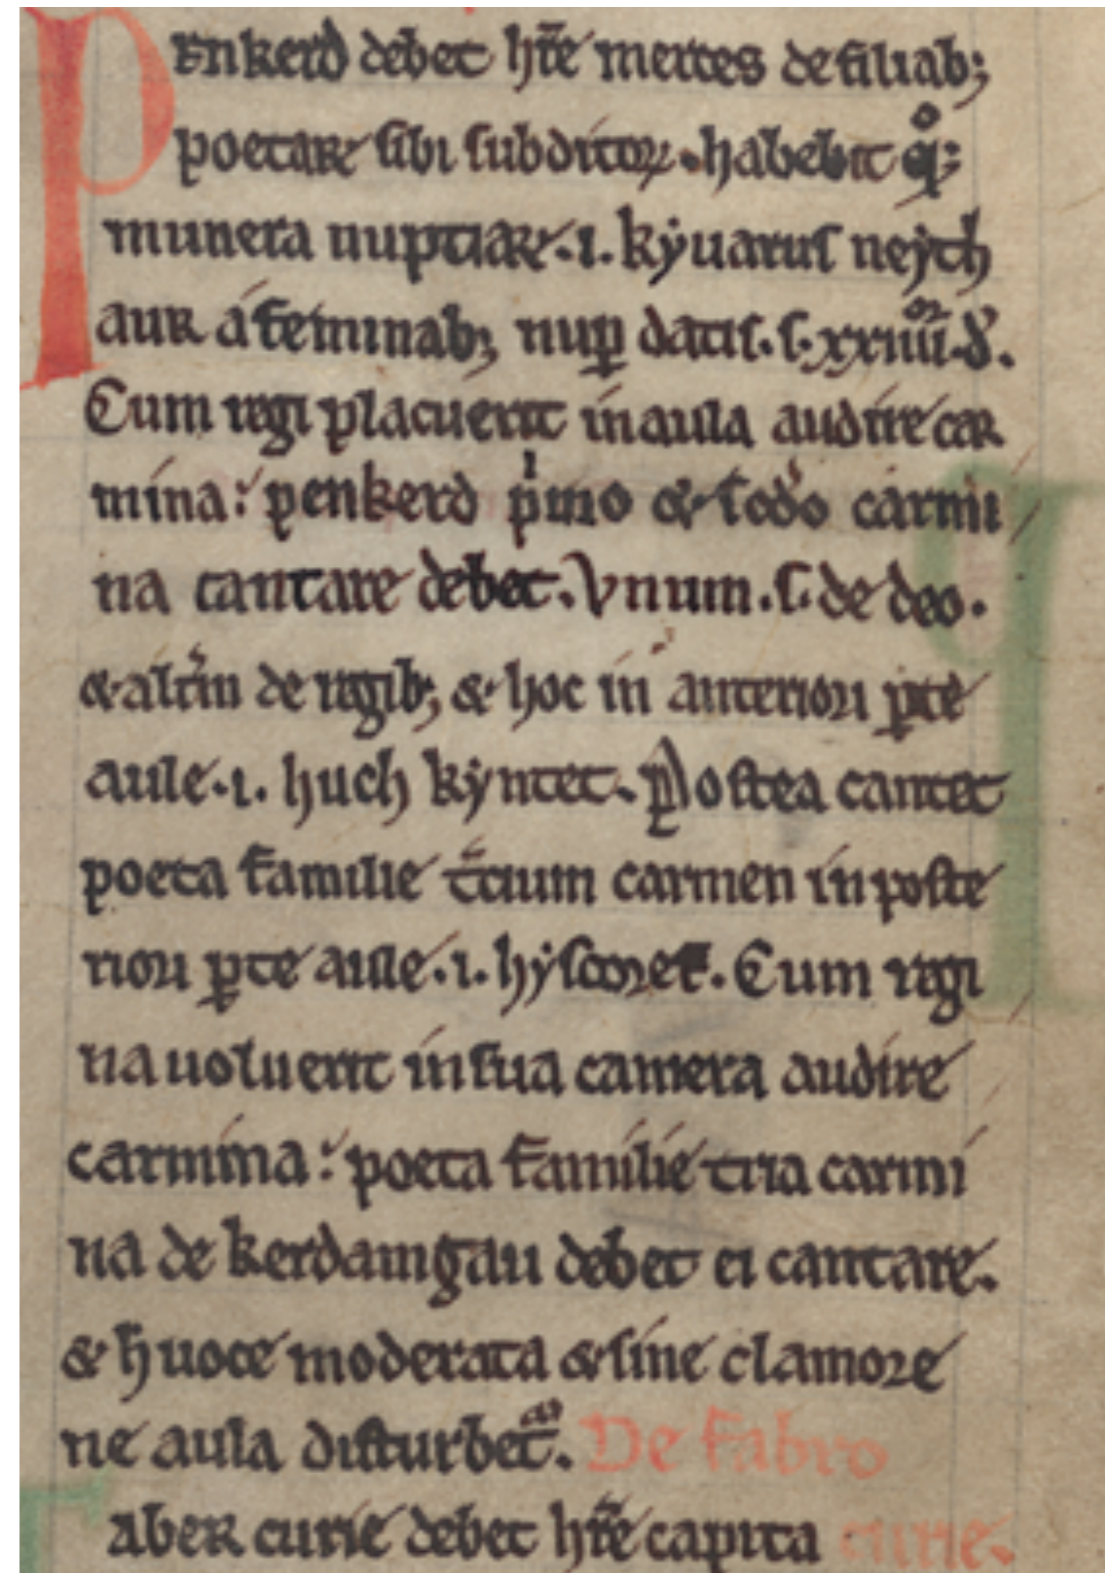 Penkerd debet hr̄e mertes de filiab;
poetaꝝ sibi subditoꝝ. habebit q°q;
munera nuptiaꝝ .i. kẏuarus neẏth
aur a feminab; nuꝑ datis .s. xxiiii or .d.
Cum regi placuerit in aula audire car
mina: penkerd pͥmo & scdo carmi
na cantare debet. Vnum .s. de deo.
& altm̄ de regib; & hoc in anteriori ꝑte
aule .i. huch kẏntet. Postea cantet
poeta familie t̄cium carmen in poste
riori ꝑte aule .i. hẏscoref. Cum regi
na uoluerit in sua camera audire
carmina: poeta familie tria carmi
na de kerdamgau debet ei cantare.
& h̄ uoce moderata & sine clamore
ne aula disturbet᷑. De fabro
aber curie debet hr̄e capita curie.